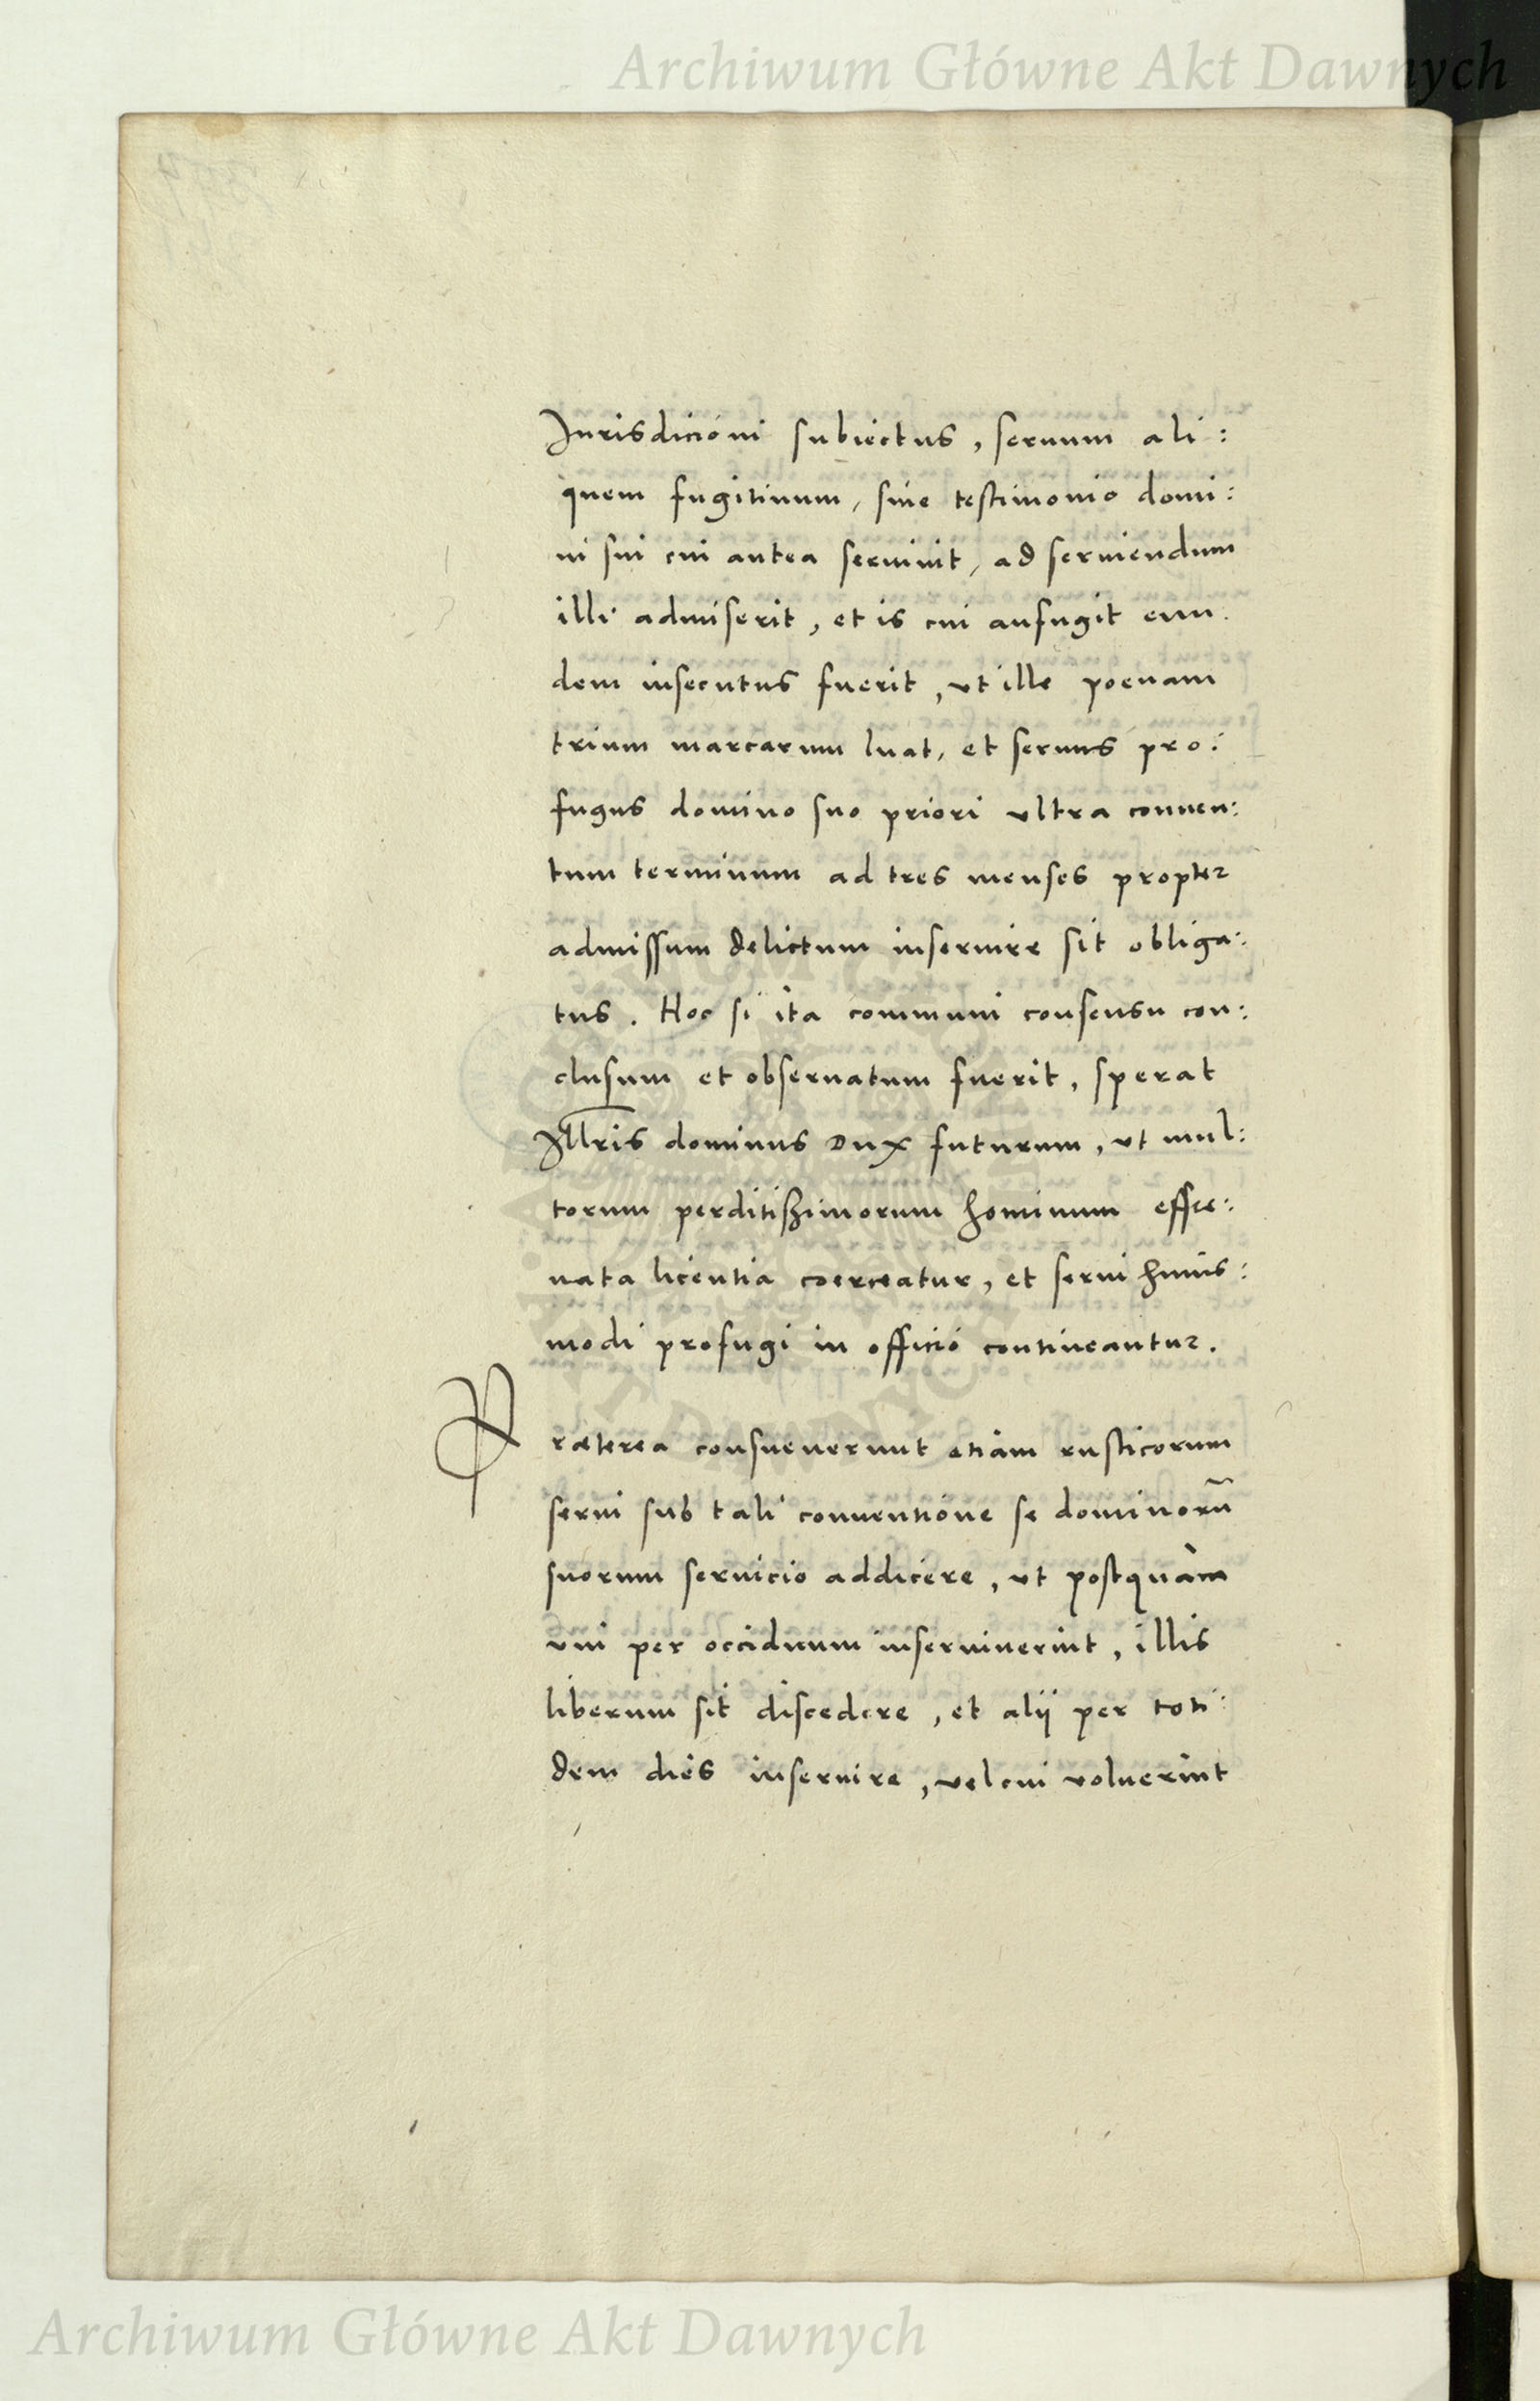 Archiwum Główne Akt Dawnych
Jurisdicioni subiectus, seruum ali:
quem fugitiuum, siue testimonio domi:
ni sui cui antea seruiuit, ad seruiendum
illi admiserit, et is cui aufugit eun
dem insecutus fuerit, vt ille poenam
trium marcarum luat, et seruus pro:
fugus domino suo priori vltra conuen:
tum terminum ad tres menses propter
admissum delictum inseruire sit obliga:
tus. Hoc si ita communi consensu con:
clusum et obseruatum fuerit, sperat
Jllris dominus Dux futurum, vt mul:
torum perditißimorum hominum effre:
nata licentia coerceatur, et serui huius:
modi profugi in officio contineantur.
Præterea consueuerunt etiam rusticorum
serui sub tali conuentione se dominorũ
suorum seruicio addicere, vt postquàm
vni per occiduum inseruiuerint, illis
liberum sit discedere, et alij per toti:
dem dies inseruire, vel cui voluerint
Archiwum Główne Akt Dawnych